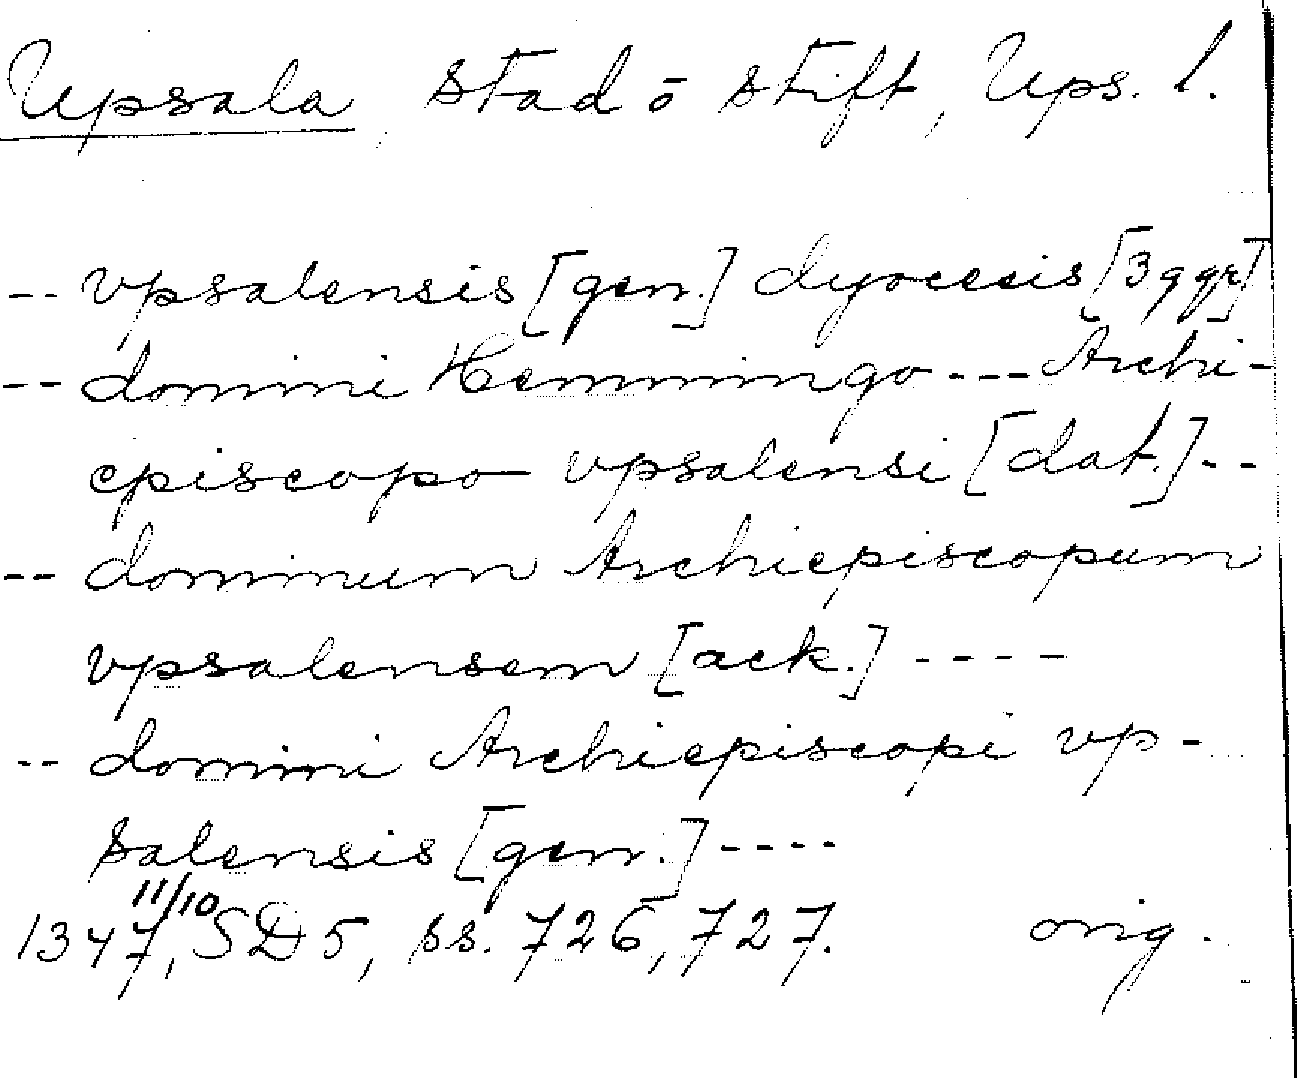 Upsala, stad o stift, Ups. l.
-- vpsalensis [gen.] dyocesis [3 ggr]
-- domini Hemmingo --- Archi-
episcopo vpsalensi [dat.] --
-- dominum Archiepiscopum
vpsalensem [ack.] ----
-- domini Archiepiscopi vp-
salensis [gen.] ----
1347 11/10, SD 5, ss. 726, 727. orig.